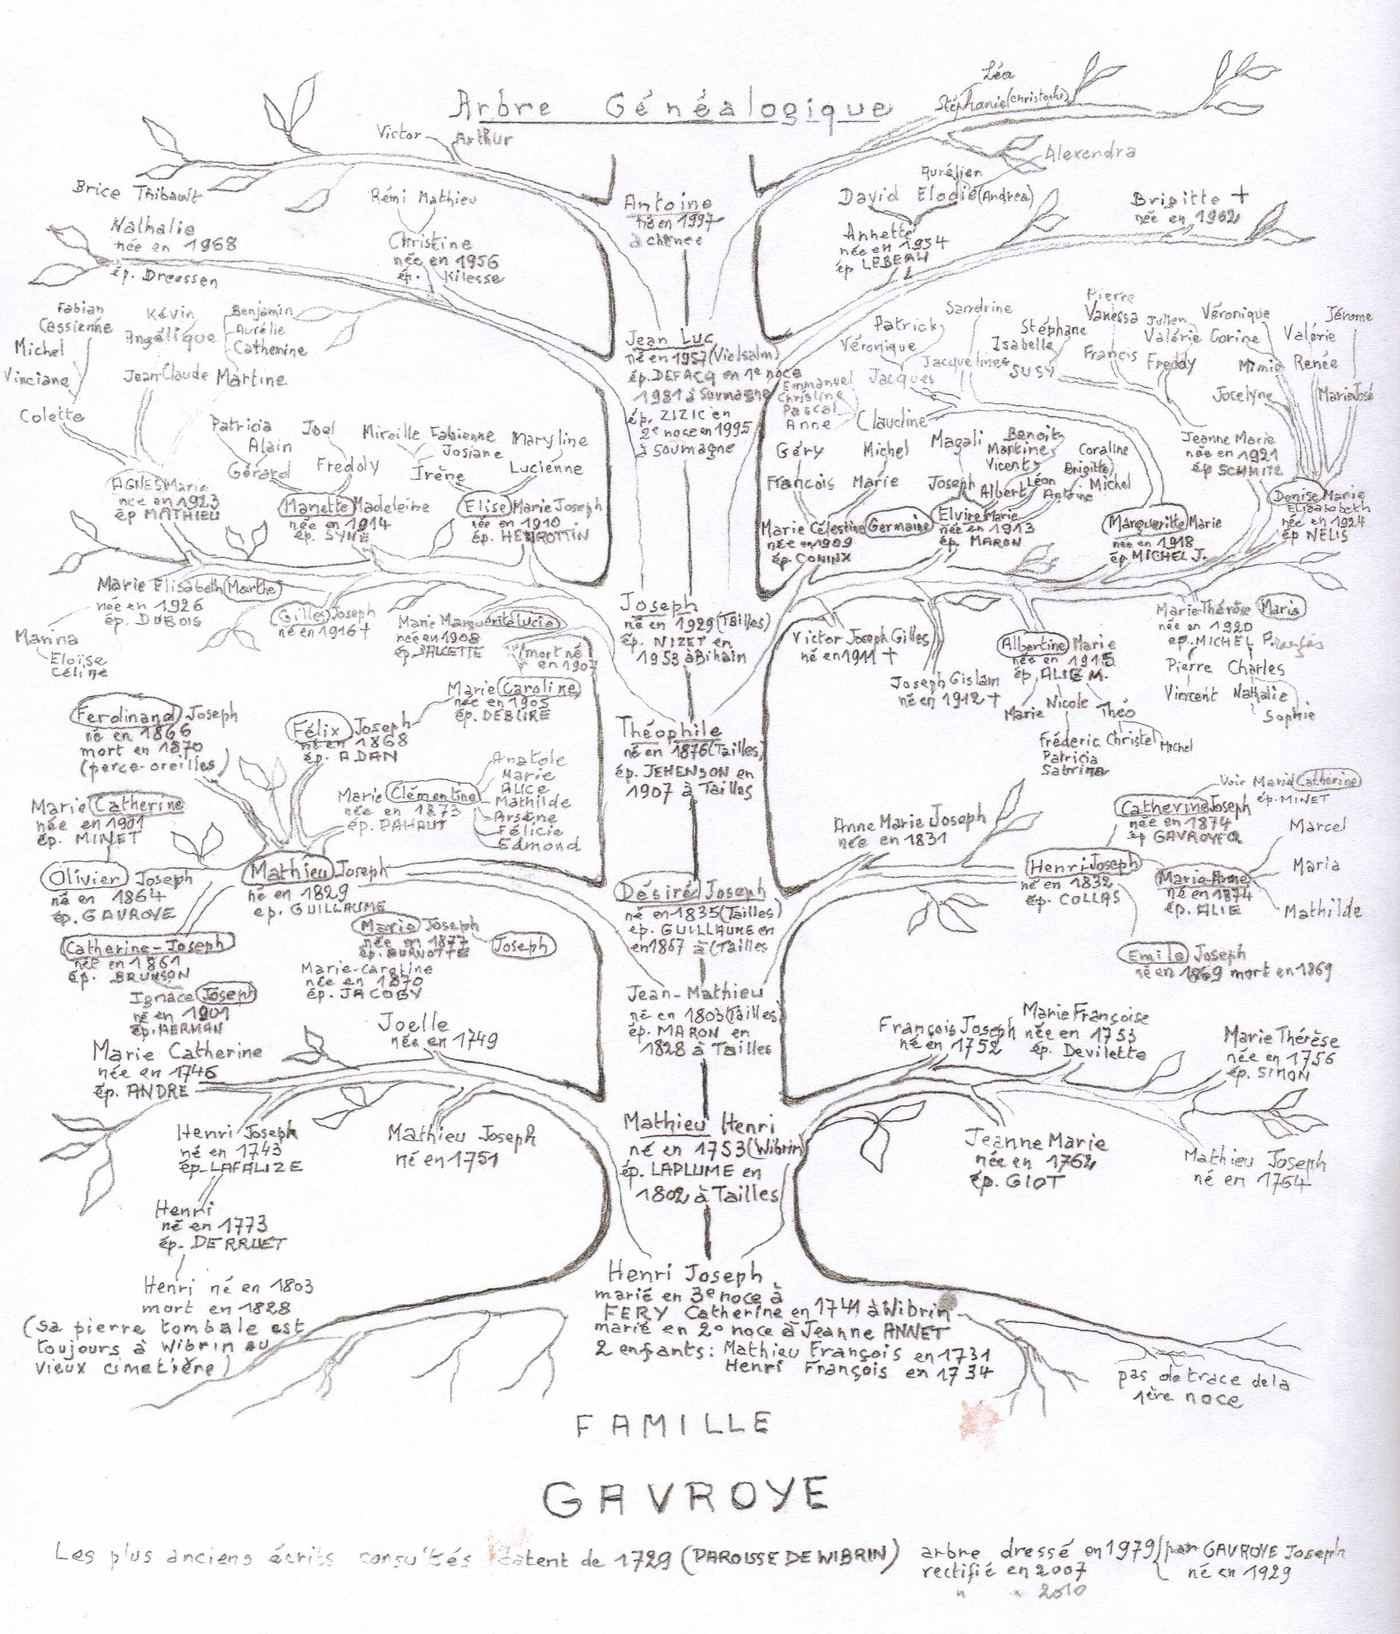 Arbre Généalogique
Léa
Stéphanie (Christophe)
Alexendra
Victor
Arthur
Brice Thibault
Nathalie
née en 1968
ép. Dreessen
Rémi Mathieu
Christine
née en 1956
ép. Kilesse
Antoine
né en 1997
à chênee
Aurélien
David Elodie (Andrea)
Annette
née en 1954
ép. LEBEAU
Brigitte +
née en 1962
Jean Luc
né en 1957 (Vielsalm)
ép. DEFACQ en 1e noce
1981 à Soumagne
ép. ZIZIC en
2e noce en 1995
à Soumagne
Fabian
Cassienne
Michel
Vinciane
Colette
Kévin
Angélique
Benjamin
Aurélie
Catherine
Jean-Claude Martine
AGNES Marie
née en 1923
ép MATHIEU
Patricia
Alain
Gérard
Joel
Freddy
Mariette Madeleine
née en 1914
ép. SYNE
Mireille Fabienne
Josiane
Irène
Maryline
Lucienne
Elise Marie Joseph
née en 1910
ép. HENROTTIN
Emmanuel
Christine
Pascal
Anne
Claudine
Patrick
Véronique
Jacques
Sandrine
Jacqueline
Stéphane
Isabelle
SUSY
Pierre
Vanessa
Francis
Julien
Valérie
Freddy
Véronique
Corine
Mimie
Jocelyne
Valérie
Renée
Jérome
Marie José
Jeanne Marie
née en 1921
ép SCHMITZ
Denise Marie
Elisabeth
née en 1924
ép NELIS
Géry
Francois
Michel
Marie
Marie Célestine Germaine
née en 1909
ép. CONINX
Magali
Joseph
Benoit
Martine
Vicent
Albert
Léon
Antoine
Coraline
Brigitte
Michel
Elvire Marie
née en 1913
ép. MARON
Marguerite Marie
née en 1918
ép MICHEL J.
Marie Elisabeth (Marthe)
née en 1926
ép. DUBOIS
Marina
Eloïse
Céline
Gilles Joseph
né en 1916 +
Marie Marguerite Lucie
née en 1908
ép. JALLETTE
(mort né
en 1907
Marie Caroline
née en 1905
ép. DEBLIRE
Joseph
né en 1929 (Tailles)
ép. NIZET en
1953 à Bihain
Victor Joseph Gilles
né en 1911 +
Joseph Gislain
né en 1912 +
Albertine Marie
née en 1915
ép. ALIE M.
Nicole
Marie Théo
Fréderic Christel Michel
Patricia
Sabrina
Marie-Thérèse Maria
née en 1920
ep. MICHEL
Pierre Charles
Vincent Nathalie
Sophie
Ferdinand Joseph
né en 1866
mort en 1870
(perce-oreilles)
Félix Joseph
né en 1868
ép. ADAN
Théophile
né en 1876 (Tailles)
ép. JEHENSON en
1907 à Tailles
Marie Clémentine
née en 1873
ép. PAHAUT
Anatole
Marie
ALICE
Mathilde
Arsène
Félicie
Edmond
Marie Catherine
née en 1901
ép. MINET
Olivier Joseph
né en 1864
ép. GAVROYE
Mathieu Joseph
né en 1829
ep. GUILLAUME
Désiré Joseph
né en 1835 (Tailles)
ép. GUILLAUME en
en 1867 à (Tailles
Anne Marie Joseph
née en 1831
Voir Maria Catherine
ép. MINET
Catherine Joseph
née en 1874
ép GAVROYE O
Henri-Joseph
né en 1832
ép. COLLAS
Marie-Anne
née en 1874
ép. ALIE
Marcel
Maria
Mathilde
Emile Joseph
né en 1869 mort en 1869
Catherine-Joseph
née en 1861
ép. BRUNSON
Ignace Joseph
né en 1901
ép. HERMAN
Marie Joseph
née en 1877
ép. BURNOTTE
Joseph
Marie-Caroline
née en 1870
ép. JACOBY
Jean-Mathieu
né en 1803 (Tailles)
ép. MARON en
1828 à Tailles
Marie Catherine
née en 1746
ép. ANDRE
Joelle
née en 1749
François Joseph
né en 1752
Marie Françoise
née en 1753
ép. Devilette
Marie Thérèse
née en 1756
ép. SIMON
Henri Joseph
né en 1743
ép. LAFALIZE
Mathieu Joseph
né en 1751
Mathieu Henri
né en 1753 (Wibrin)
ép. LAPLUME en
1802 à Tailles
Jeanne Marie
née en 1762
ép. GIOT
Mathieu Joseph
né en 1764
Henri
né en 1773
ép. DERRUET
Henri né en 1803
mort en 1828
(sa pierre tombale est
toujours à Wibrin au
vieux cimetière)
Henri Joseph
marié en 3e noce à
FERY Catherine en 1741 à Wibrin
marié en 2e noce à Jeanne ANNET
2 enfants: Mathieu François en 1731
Henri François en 1734
pas de trace de la
1ère noce
FAMILLE
GAVROYE
Les plus anciens écrits consultés datent de 1729 (PAROISSE DE WIBRIN)
arbre dressé en 1979 (par GAVROYE Joseph
rectifié en 2007 né en 1929
" " 2010